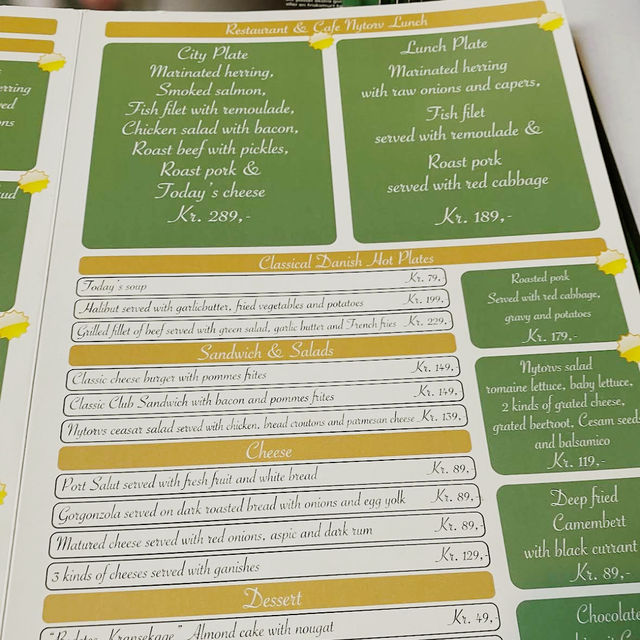 Restaurant & Cafe Nytorv Lunch
City Plate
Marinated herring,
Smoked salmon,
Fish filet with remoulade,
Chicken salad with bacon,
Roast beef with pickles,
Roast pork &
Today's cheese
Kr. 289,-
Lunch Plate
Marinated herring
with raw onions and capers,
Fish filet
served with remoulade &
Roast pork
served with red cabbage
Kr. 189,-
Classical Danish Hot Plates
Today's soup Kr. 79,-
Halibut served with garlicbutter, fried vegetables and potatoes Kr. 199,-
Grilled fillet of beef served with green salad, garlic butter and French fries Kr. 229,
Sandwich & Salads
Classic cheese burger with pommes frites Kr. 149,-
Classic Club Sandwich with bacon and pommes frites Kr. 149,-
Nytorvs ceasar salad served with chicken, bread croutons and parmesan cheese Kr. 139,-
Cheese
Port Salut served with fresh fruit and white bread Kr. 89,-
Gorgonzola served on dark roasted bread with onions and egg yolk Kr. 89,-
Matured cheese served with red onions, aspic and dark rum Kr. 89,-
3 kinds of cheeses served with ganishes Kr. 129,-
Dessert
Almond cake with nougat Kr. 49,-
Roasted pork
Served with red cabbage,
gravy and potatoes
Kr. 179,-
Nytorvs salad
romaine lettuce, baby lettuce,
2 kinds of grated cheese,
grated beetroot, Cesam seeds
and balsamico
Kr. 119,-
Deep fried
Camembert
with black currant
Kr. 89,-
Chocolate